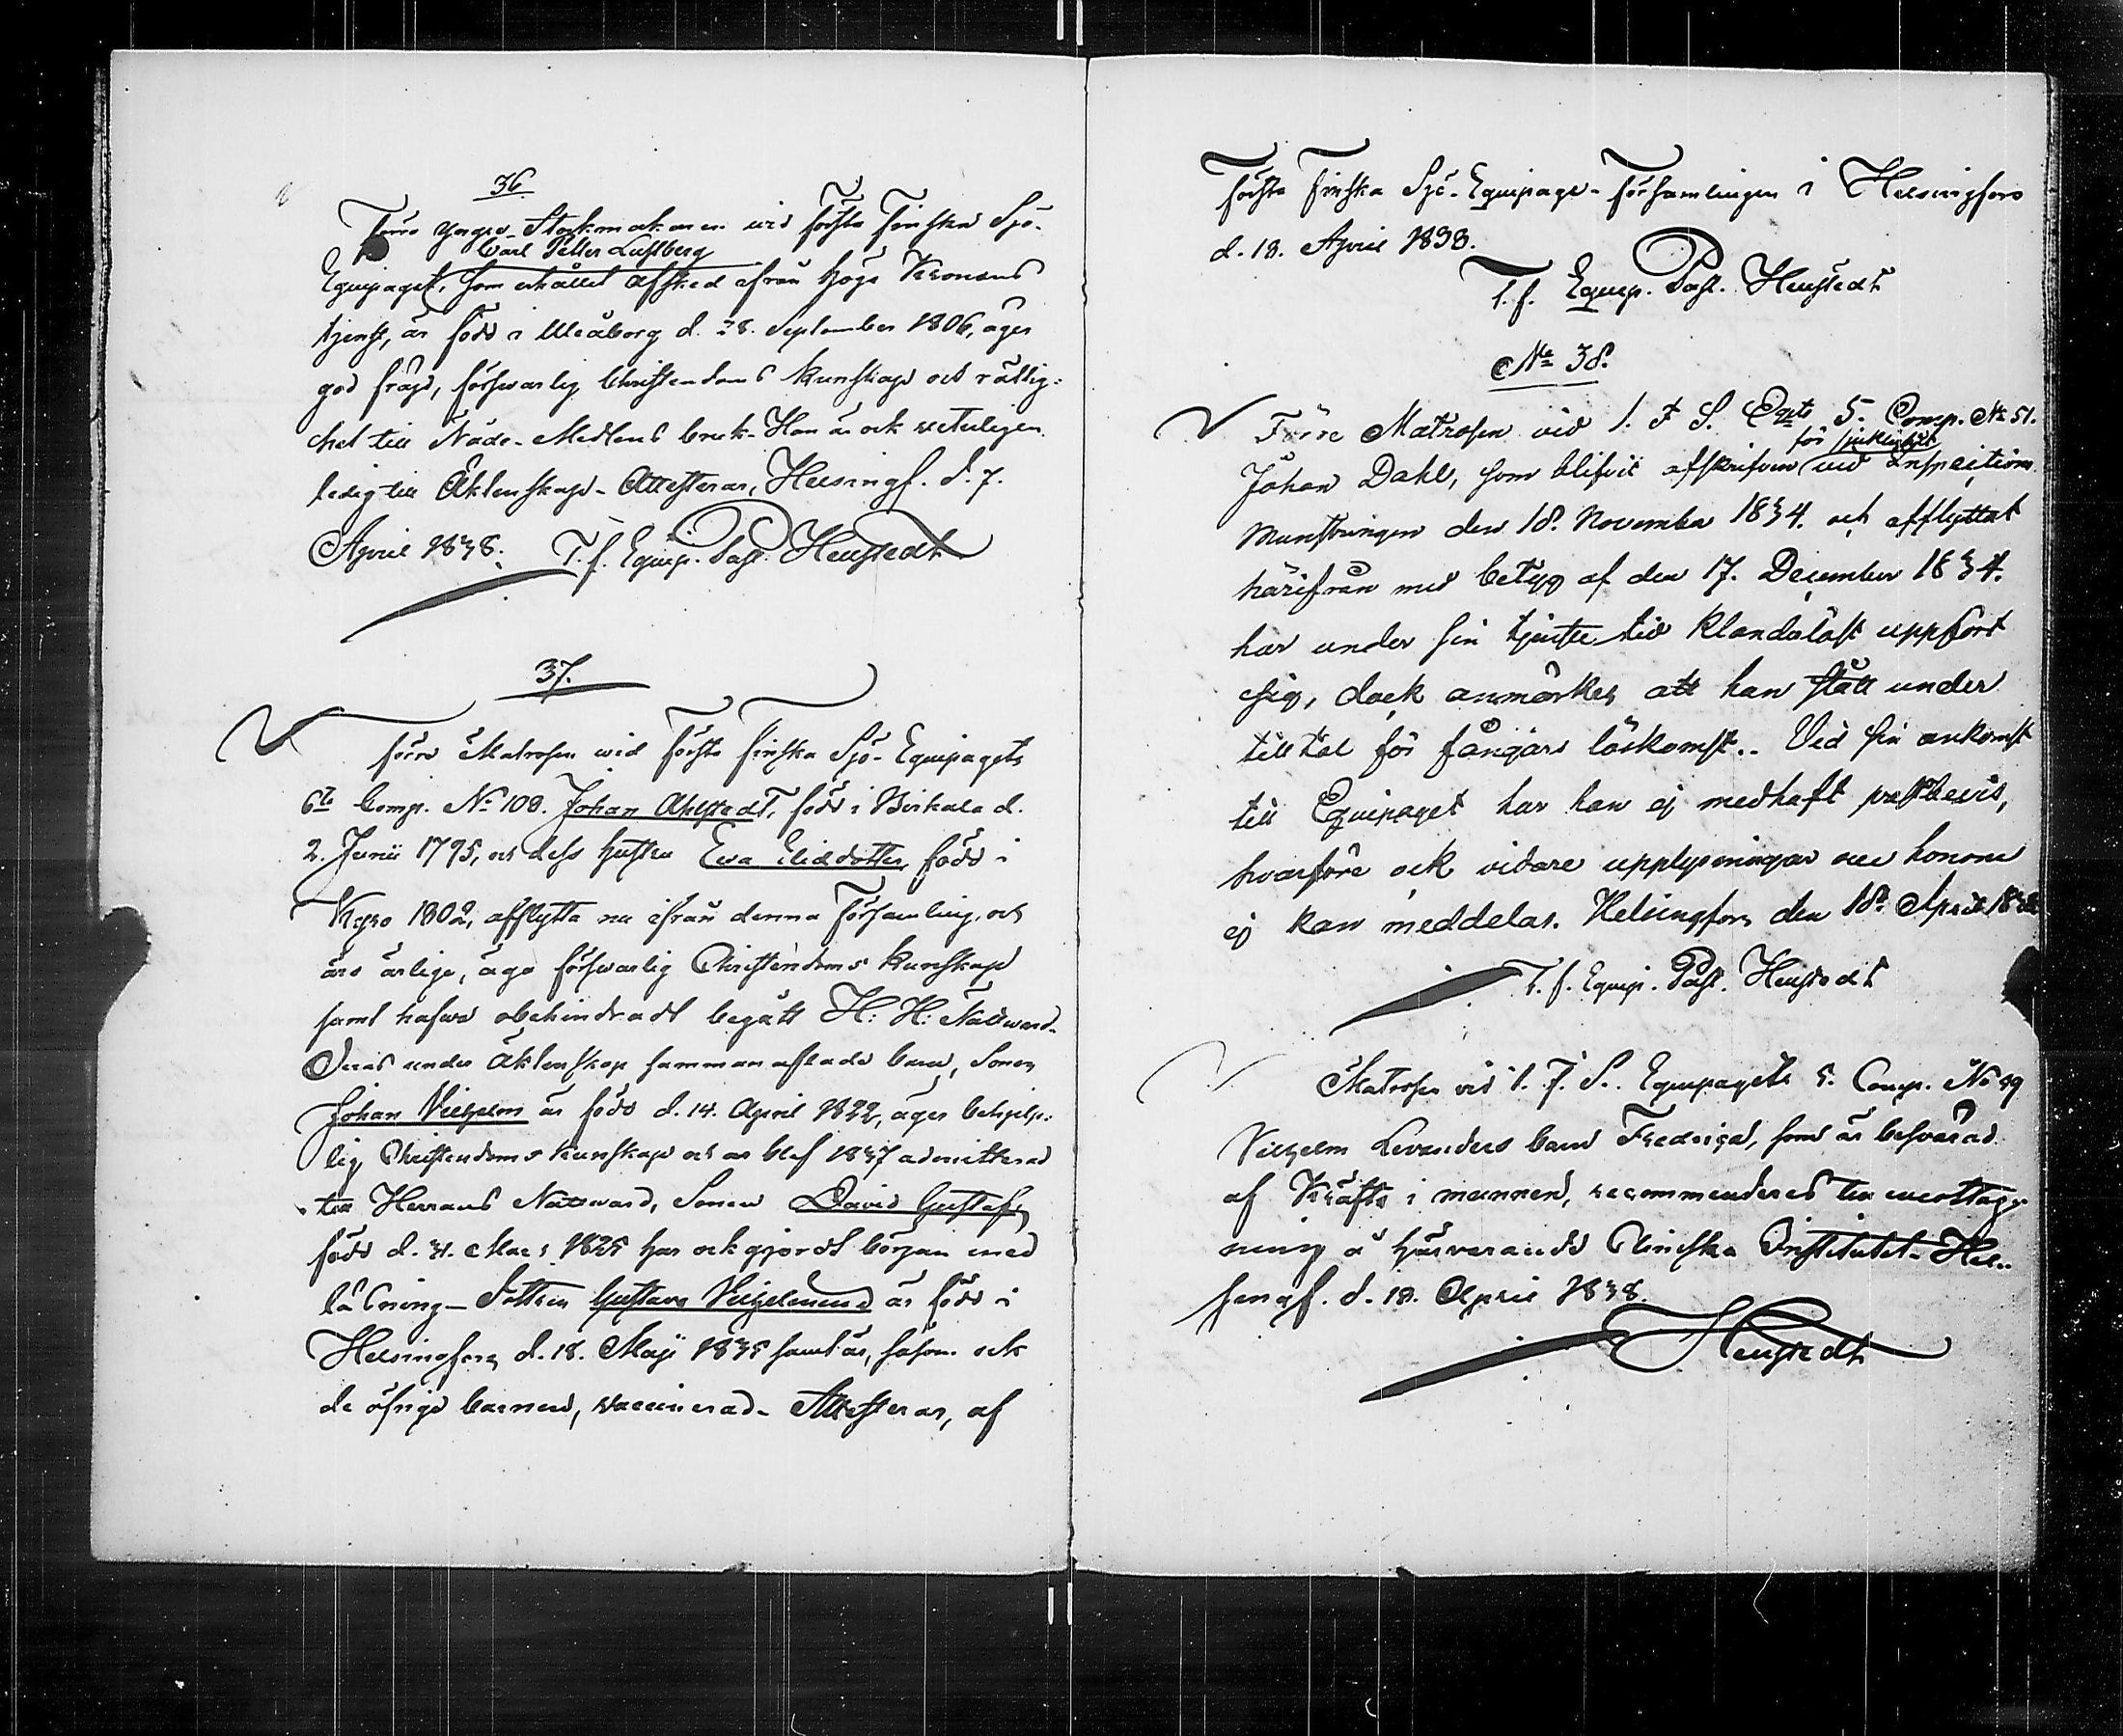 36.
Förre yngre Stockmakaren wid första Finska Sjö-
Carl Petter Luftberg
Equipaget, som erhållit afsked ifrån höga Kronans
tjenst, är född i Uleåborg d. 28. September 1806, äger
god frägd, förswarlig Christendoms kunskap och rättig-
het till Nåde-Medlens bruk. Han är ock veterligen
ledig till Äktenskap. Attesterar, Helsingf. d. 7.
April 1838. T. f. Equip. Past. Heustedt
37.
Förre Matrosen wid Första Finska Sjö-Equipagets
6te Comp. No 108. Johan Ahlstedt, född i Birkala d.
2. Junii 1795, och dess hustru Ewa Elisdotter född i
Kyro 1802, afflytta nu ifrån denna Församling, och
äro ärlige, äga förswarlig Christendoms kunskap
samt hafwa obehindradt begått H: H: Nattward.
Deras under äktenskap sammanaflade barn, Sonen
Johan Vilhelm är född d. 14. April 1822, äger behjelp-
lig Christendoms kunskap och blef 1837 admitterad
till Herrans Nattward, Sonen David Gustaf,
född d. 31. Mars 1825 har ock gjordt början med
läsning. Dottren Gustava Vilhelmina är född i
Helsingfors d. 18. Maji 1835 samt är, såsom ock
de öfrige barnen, vaccinerad. Attesterar, af
Första Finska Sjö-Equipage-Församlingen i Helsingfors
d. 18. April 1838.
T. f. Equip. Past. Heustedt
No 38.
Förre Matrosen vid 1. F. S. Eqts 5. Comp. No 51.
för sjuklighet
Johan Dahl, som blifvit afskrifven vid Inspections
Munstringen den 18. November 1834. och afflyttat
härifrån med betyg af den 17. December 1834.
har under sin tjenste tid klanderlöst uppfört
sig, dock anmärkes att han stått under
tilltal för fångars löskomst. Vid sin ankomst
till Equipaget har han ej medhaft prestbevis,
hvarföre ock vidare upplysningar om honom
ej kan meddelas. Helsingfors den 18. April 1838
T. f. Equip. Past. Heustedt
Matrosen vid 1. F. S. Equipagets 5. Comp. No 49
Vilhelm Levanders barn Fredrica, som är besvärad
af Kräfta i munnen, recommenderas till emottag-
ning å härvarande Cliniska Institutet. Hel-
singf. d. 18. April 1838.
Heustedt